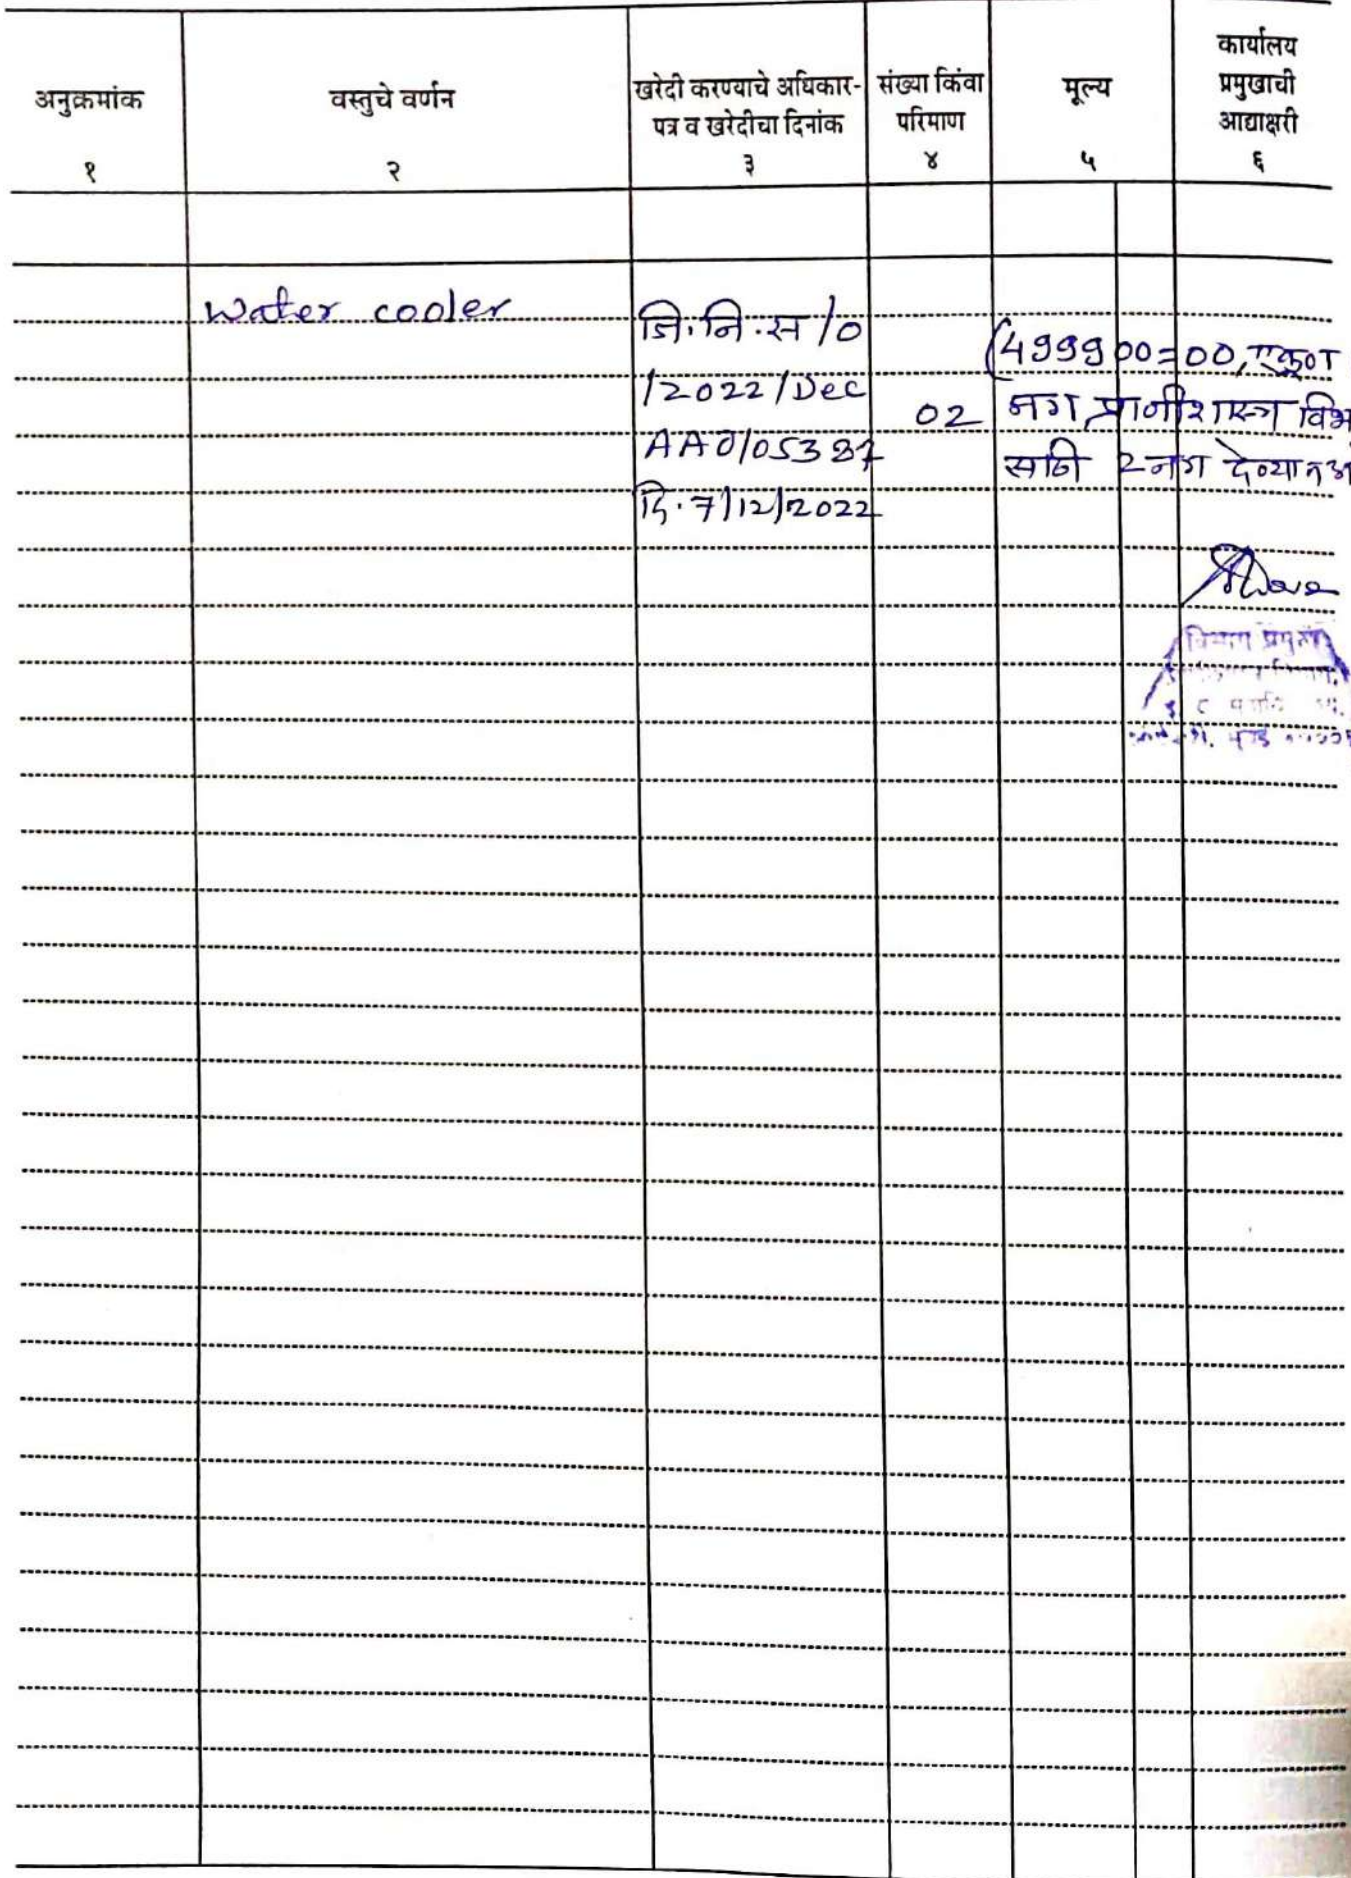 अनुक्रमांक
वस्तुचे वर्णन
खरेदी करण्याचे अधिकार-
पत्र व खरेदीचा दिनांक
संख्या किंवा
परिमाण
मूल्य
कार्यालय
प्रमुखाची
आद्याक्षरी
१ २ ३ ४ ५ ६
Water cooler
जि.नि.स/0
/2022/Dec
AAO/05387
दि.7/12/2022
02
(499900=00, एकूण
नग प्राणीशास्त्र विभ
साठी 2 नग देण्यात
विभाग प्रमुख